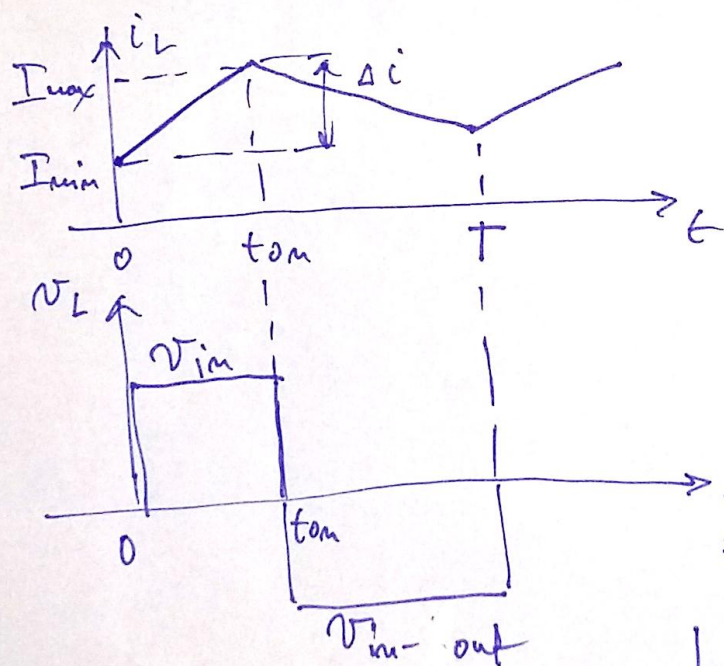 i_L
I_max
Δi
I_min
0 t_on T t
v_L
V_in
0
t_on
V_in - out